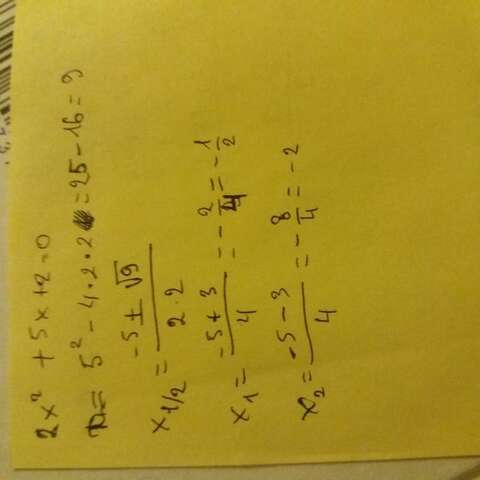 2x² + 5x + 2 = 0
D = 5² - 4 · 2 · 2 = 25 - 16 = 9
x₁/₂ = (-5 ± √9) / (2 · 2)
x₁ = (-5 + 3) / 4 = - 2/4 = - 1/2
x₂ = (-5 - 3) / 4 = - 8/4 = -2